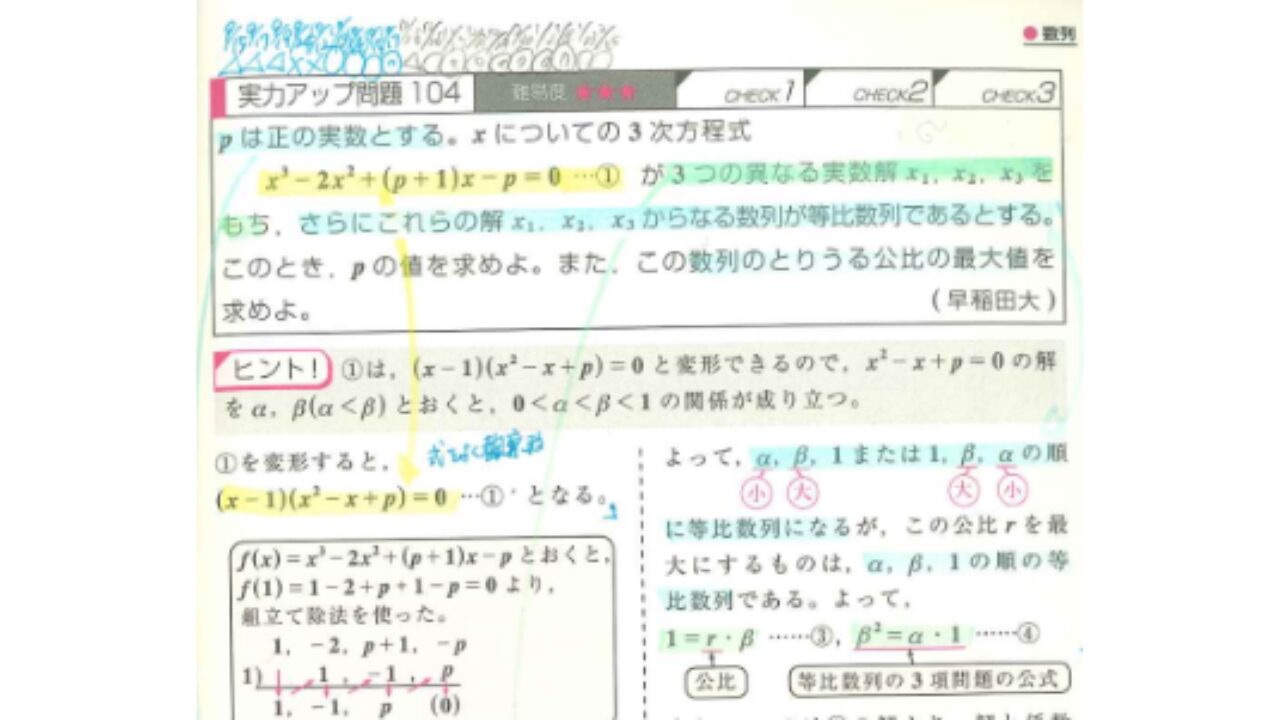 ● 数列
実力アップ問題 104 難易度 ★★★ CHECK 1 CHECK 2 CHECK 3
p は正の実数とする。x についての 3 次方程式
x³−2x²+(p+1)x−p=0 …① が 3 つの異なる実数解 x₁, x₂, x₃ を
もち、さらにこれらの解 x₁, x₂, x₃ からなる数列が等比数列であるとする。
このとき、p の値を求めよ。また、この数列のとりうる公比の最大値を
求めよ。 (早稲田大)
ヒント! ①は, (x−1)(x²−x+p)=0 と変形できるので, x²−x+p=0 の解
を α, β(α<β) とおくと, 0<α<β<1 の関係が成り立つ。
①を変形すると,
(x−1)(x²−x+p)=0 …①′ となる。
f(x)=x³−2x²+(p+1)x−p とおくと,
f(1)=1−2+p+1−p=0 より,
組立て除法を使った。
1, −2, p+1, −p
1) 1, −1, p
1, −1, p (0)
よって, α, β, 1 または 1, β, α の順
小 大 大 小
に等比数列になるが, この公比 r を最
大にするものは, α, β, 1 の順の等
比数列である。よって,
1=r・β ……③, β²=α・1 ……④
公比 等比数列の 3 項問題の公式